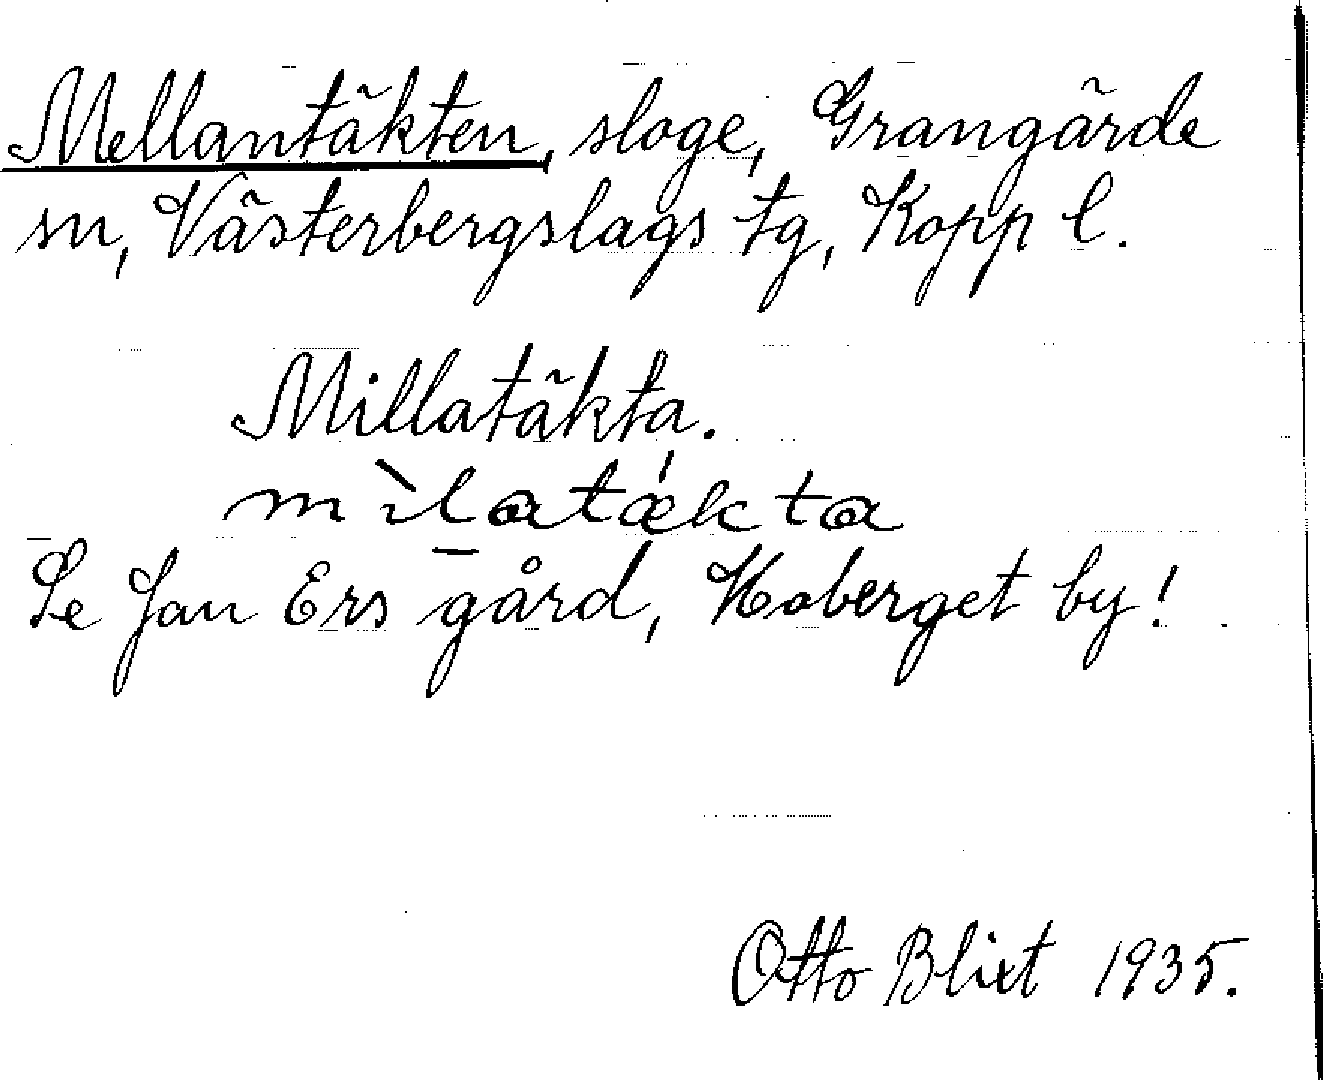 Mellantäkten, sloge, Grangärde
sn, Västerbergslags tg, Kopp l.
Millatäkta.
mìlatækta
Se Jan Ers gård, Hoberget by!
Otto Blixt 1935.